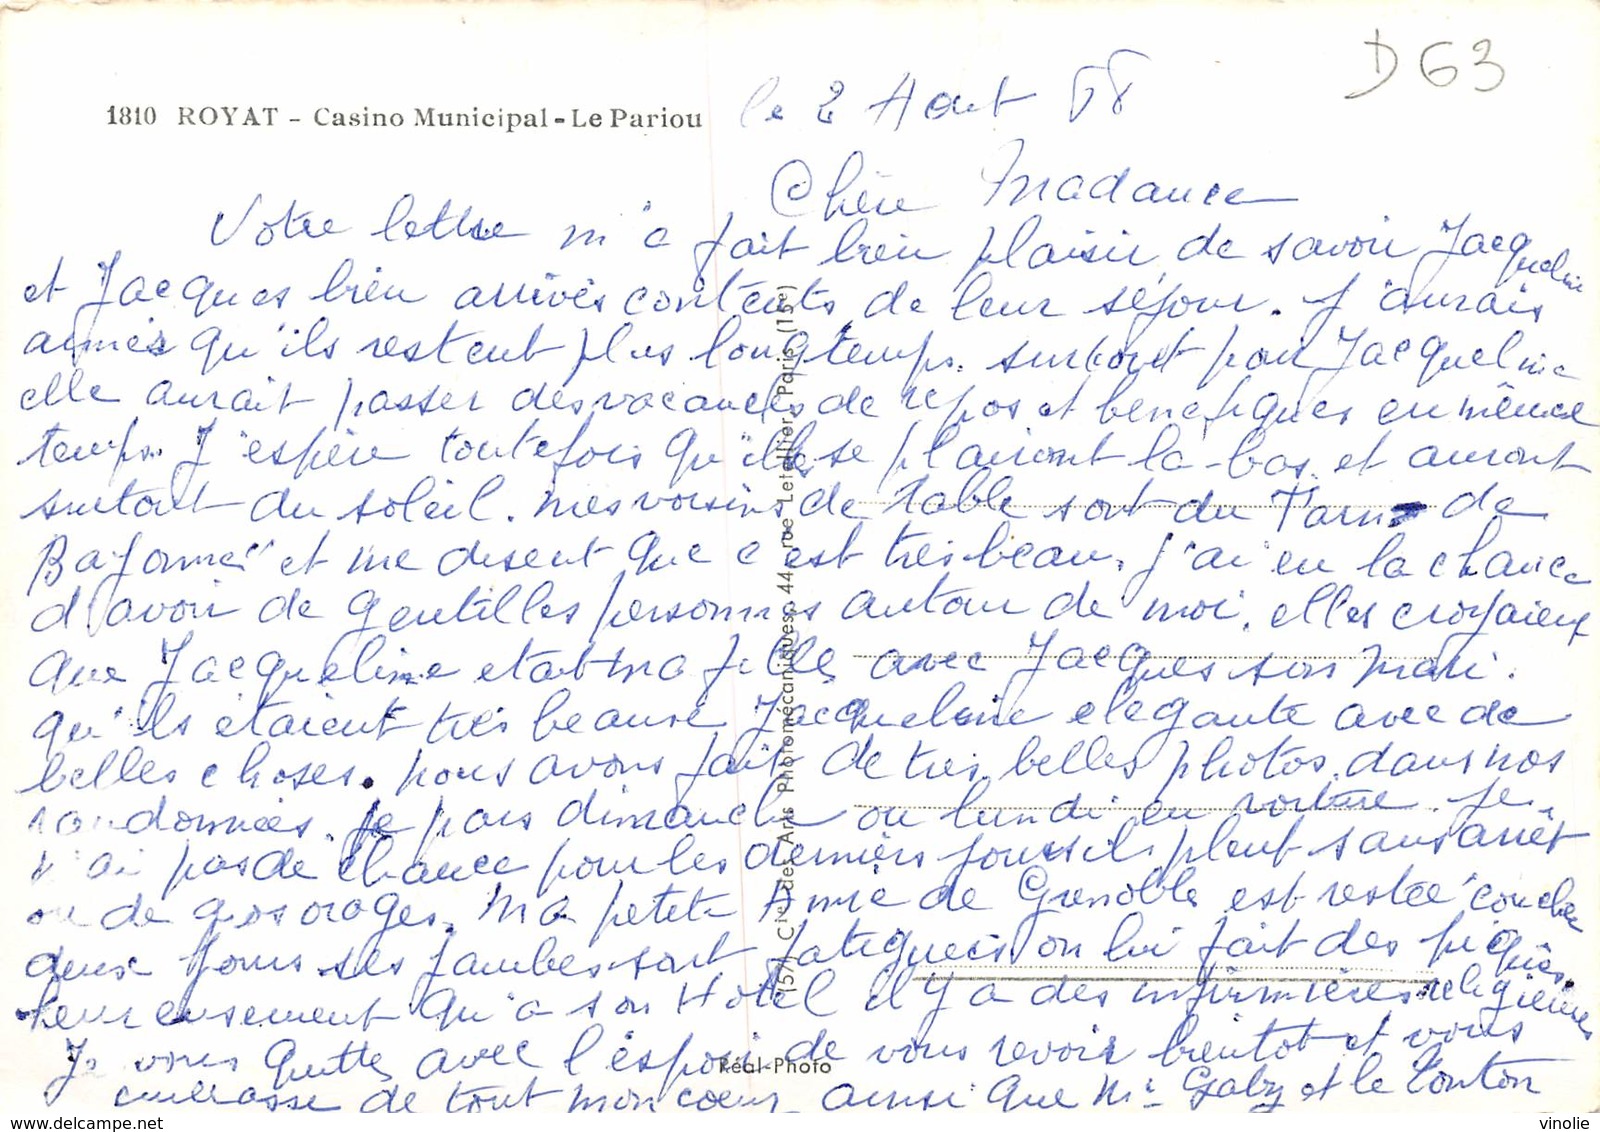 D 63
1810 ROYAT - Casino Municipal - Le Pariou
le 2 Aout 58
Chère Madame
Votre lettre m'a fait bien plaisir, de savoir Jacqueline
et Jacques bien arrivés contents de leur séjour. J'aurais
aimés qu'ils restent plus longtemps. surtout pour Jacqueline
elle aurait passer des vacances de repos et benefiques en même
temps. J'espère toutefois qu'ils se plairont la-bas et auront
surtout du soleil. mes voisins de table sont du Tarn de
Bayonne et me disent que c'est très beau. J'ai eu la chance
d'avoir de gentilles personnes autour de moi. elles croyaient
que Jacqueline etait ma fille avec Jacques son mari.
qu'ils étaient très beaux Jacqueline elegante avec de
belles choses. nous avons fait de très belles photos dans nos
randonnées. je pars dimanche ou lundi en voiture. Je
n'ai pas de chance pour les derniers jours il pleut sans arrêt
ou de gros orages. Ma petite Amie de Grenoble est restée couchée
deux jours ses jambes sont fatiguées on lui fait des piqûres
heureusement qu'a son Hotel il y a des infirmières religieuses
Je vous quitte avec l'espoir de vous revoir bientot et vous
embrasse de tout mon coeur ainsi que Mr Gaby et le Tonton
(57) Cie des Arts Photomécaniques, 44, rue Letellier, Paris (15e)
Réal-Photo
https://www.delcampe.net
vinolie